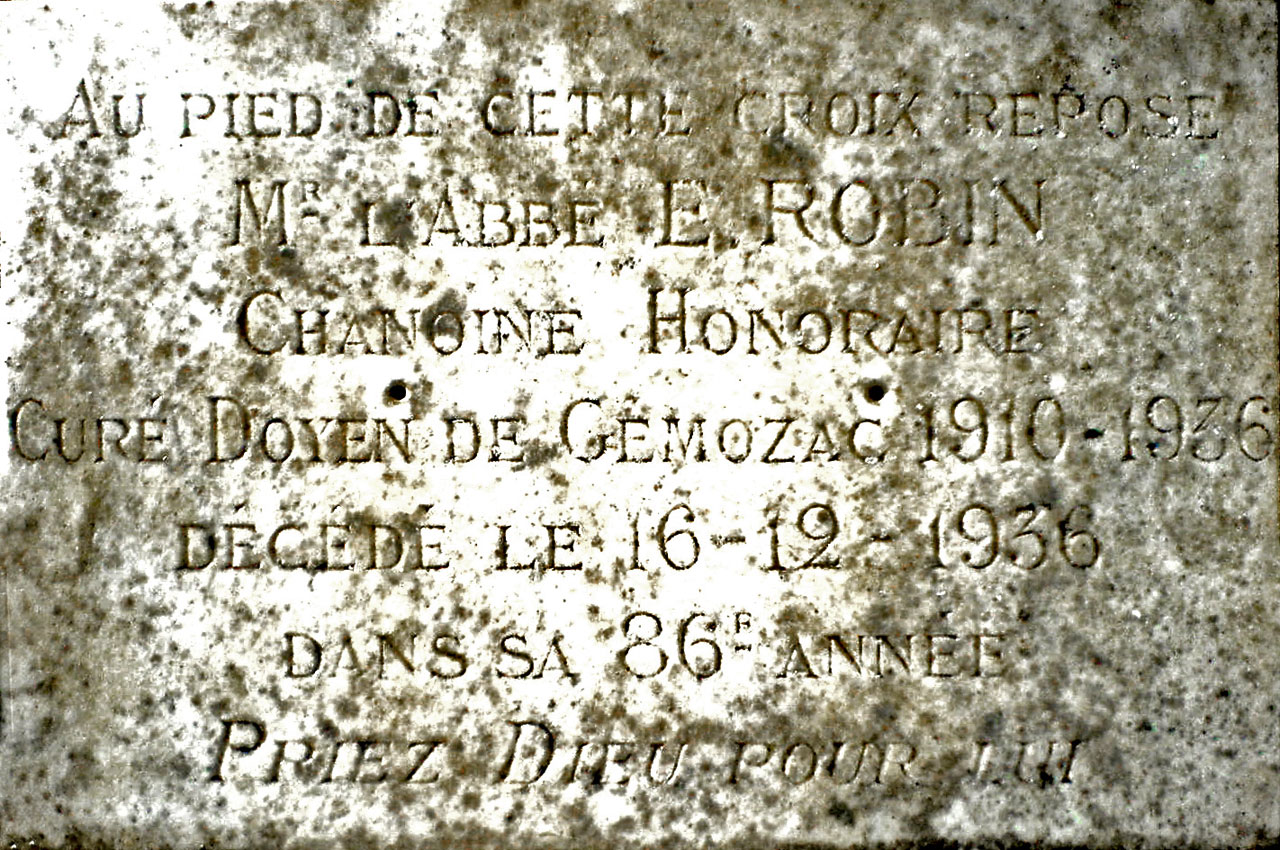 AU PIED DE CETTE CROIX REPOSE
MR L'ABBÉ E. ROBIN
CHANOINE HONORAIRE
CURÉ DOYEN DE GEMOZAC 1910-1936
DÉCÉDÉ LE 16-12-1936
DANS SA 86E ANNÉE
PRIEZ DIEU POUR LUI